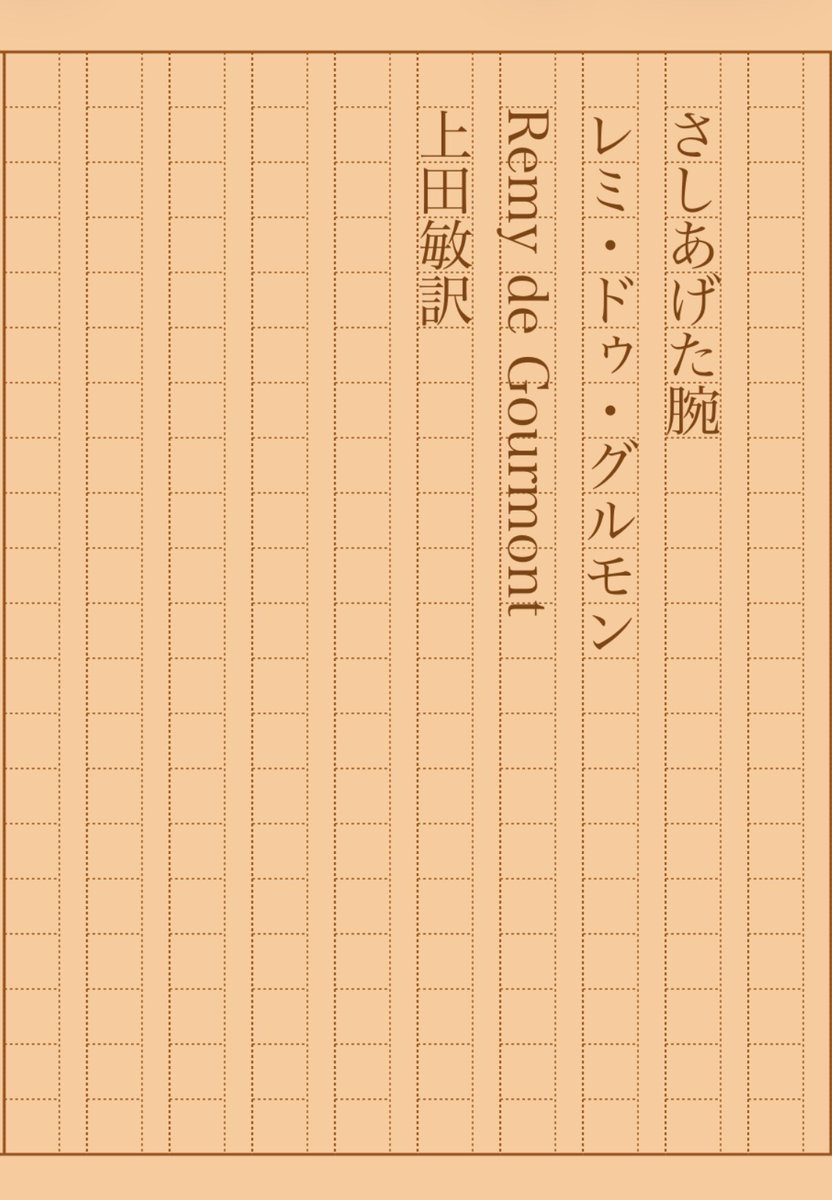 さしあげた腕
レミ・ドゥ・グルモン
Remy de Gourmont
上田敏訳